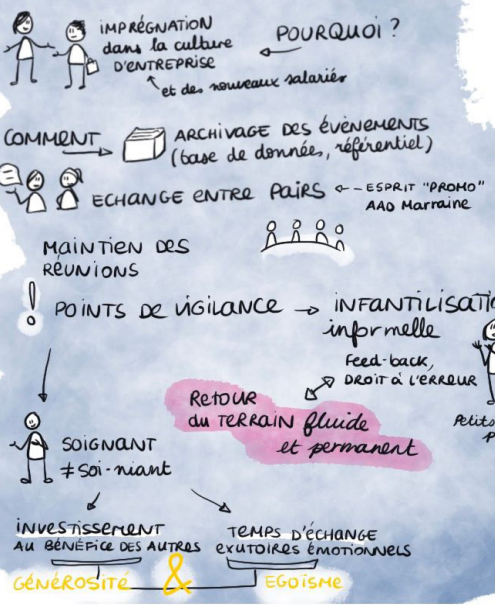 IMPRÉGNATION
dans la culture
D'ENTREPRISE
et des nouveaux salariés
POURQUOI ?
COMMENT
ARCHIVAGE DES ÉVÈNEMENTS
(base de donnée, référentiel)
ECHANGE ENTRE PAIRS
ESPRIT "PROMO"
AAD Marraine
MAINTIEN DES
RÉUNIONS
!
POINTS DE VIGILANCE
informelle
Feed-back,
DROIT à L'ERREUR
Petits
RETOUR
du TERRAIN fluide
et permanent
SOIGNANT
≠ Soi-niant
INVESTISSEMENT
AU BÉNÉFICE DES AUTRES
TEMPS D'ÉCHANGE
EXUTOIRES ÉMOTIONNELS
GÉNÉROSITÉ & EGOÏSME